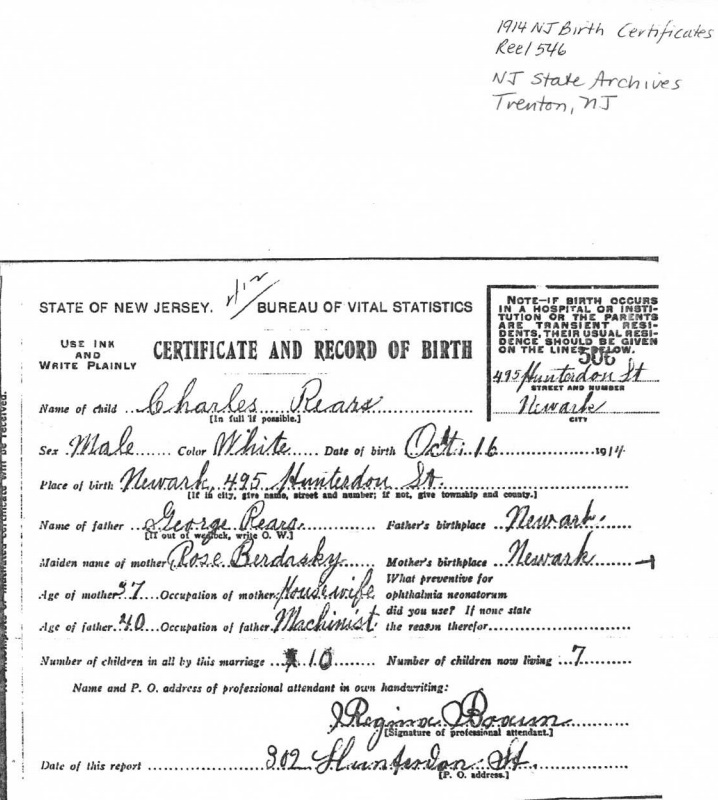 1914 NJ Birth Certificates
Reel 546
NJ State Archives
Trenton, NJ
STATE OF NEW JERSEY. BUREAU OF VITAL STATISTICS
USE INK
AND
WRITE PLAINLY
CERTIFICATE AND RECORD OF BIRTH
NOTE—IF BIRTH OCCURS
IN A HOSPITAL OR INSTI-
TUTION OR THE PARENTS
ARE TRANSIENT RESI-
DENTS, THEIR USUAL RESI-
DENCE SHOULD BE GIVEN
ON THE LINES BELOW.
495 Hunterdon St
STREET AND NUMBER
Newark
CITY
Name of child Charles Rears
[In full if possible.]
Sex Male Color White Date of birth Oct. 16 1914
Place of birth Newark, 495 Hunterdon St.
[If in city, give name, street and number; if not, give township and county.]
Name of father George Rears Father's birthplace Newark.
[If out of wedlock, write O. W.]
Maiden name of mother Rose Berdasky Mother's birthplace Newark
Age of mother 37 Occupation of mother Housewife
What preventive for
ophthalmia neonatorum
did you use? If none state
the reason therefor
Age of father 40 Occupation of father Machinist
Number of children in all by this marriage 10 Number of children now living 7
Name and P. O. address of professional attendant in own handwriting:
Regina Braun
[Signature of professional attendant.]
Date of this report 302 Hunterdon St.
[P. O. address.]